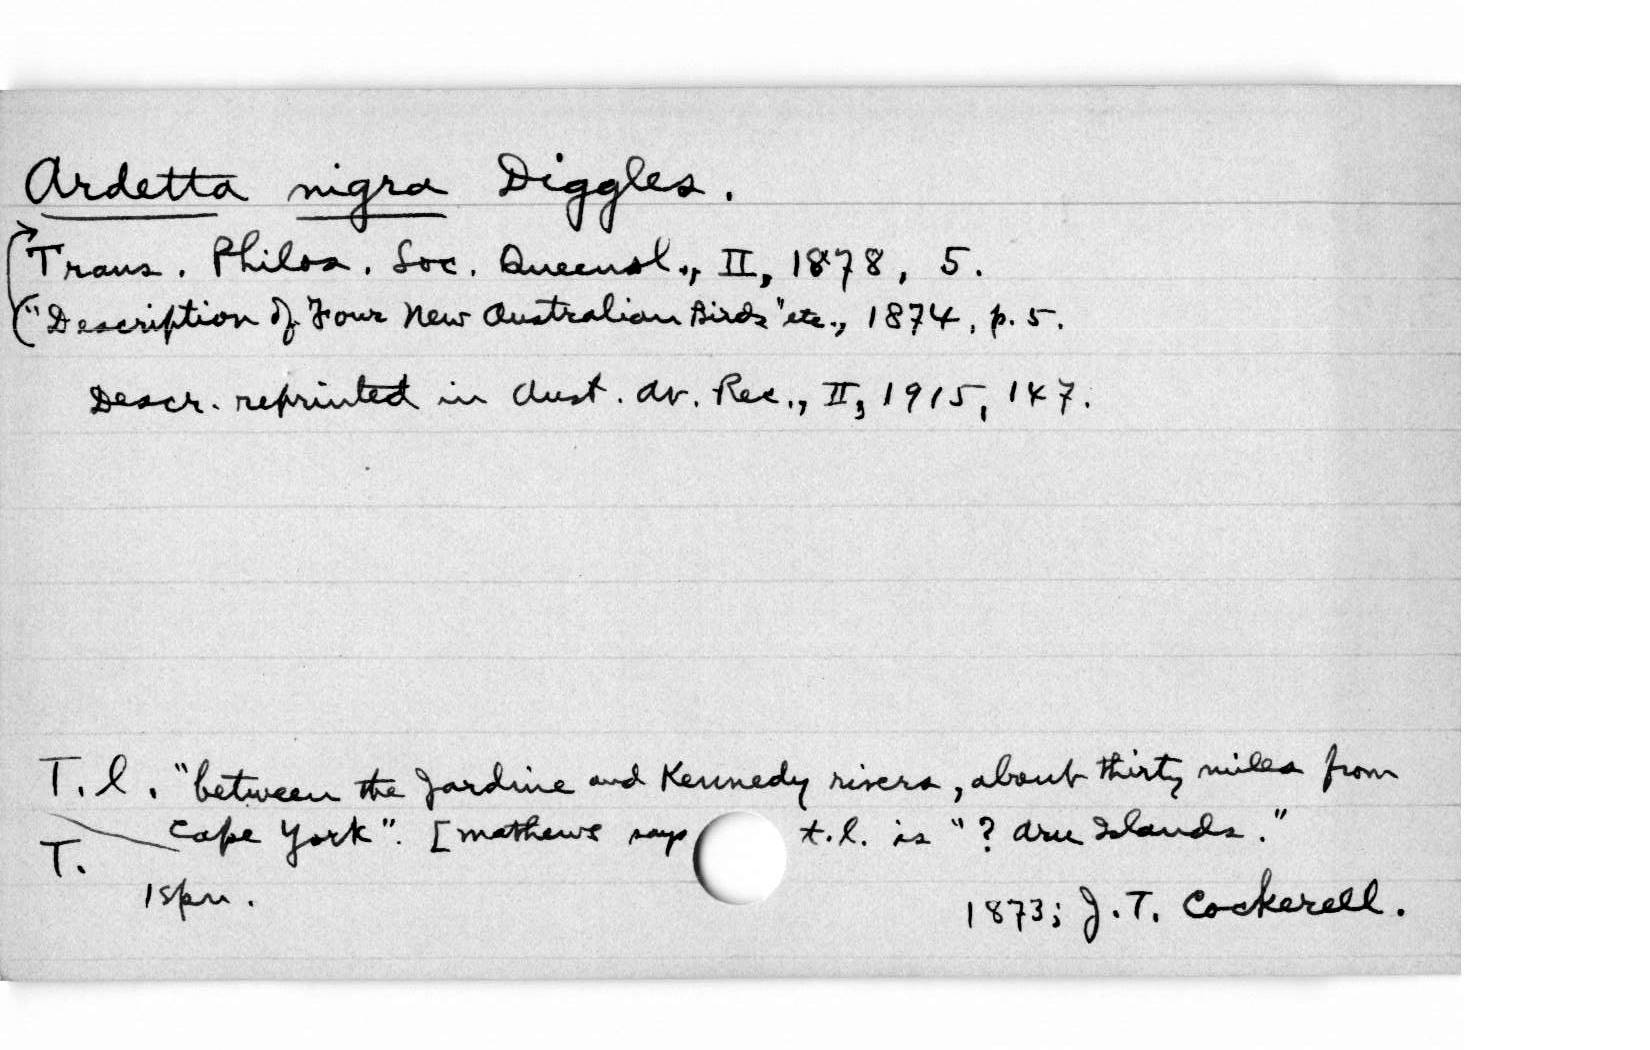 Ardetta nigra Diggles.
Trans. Philos. Soc. Queensl., II, 1878, 5.
("Description of Four New Australian Birds" etc., 1874, p. 5.
Descr. reprinted in Aust. Av. Rec., II, 1915, 147.
T.l. "between the Jardine and Kennedy rivers, about thirty miles from
Cape York". [Mathews says t.l. is "? Aru Islands."
T.
1 spn.
1873; J.T. Cockerell.